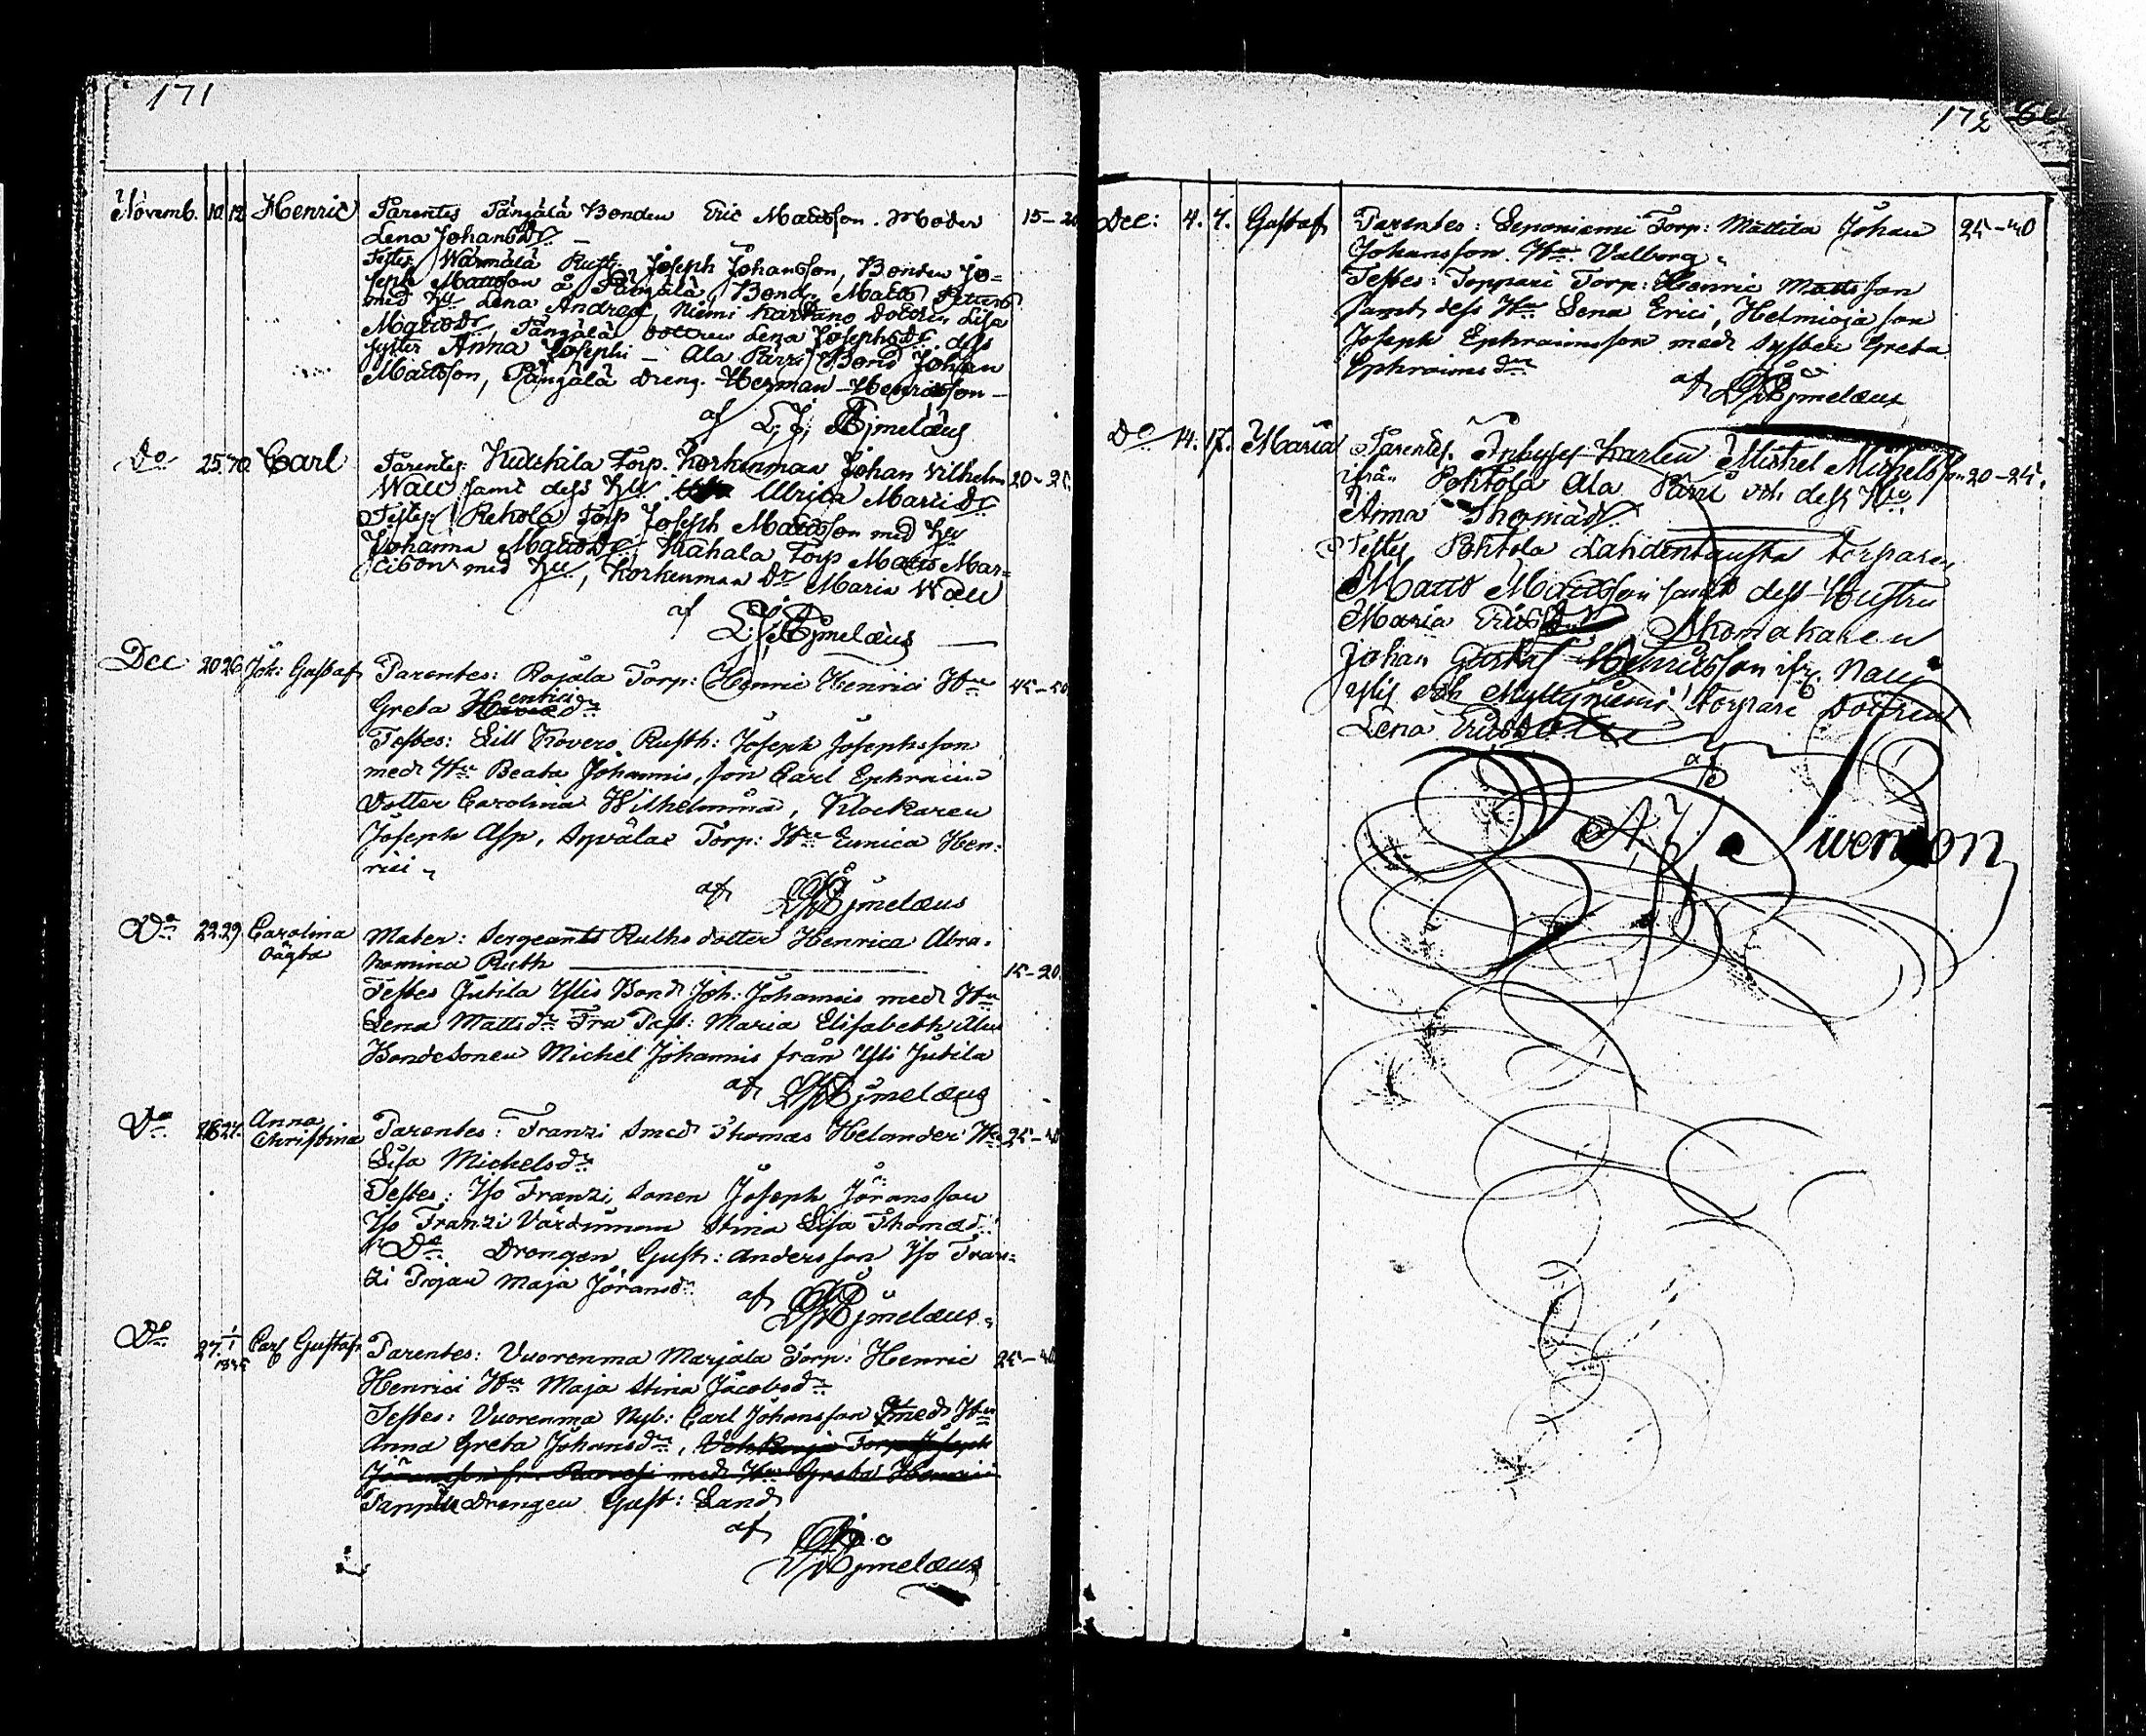 171
Novemb. 10. 12. Henric Parentes Pångälä Bonden Eric Mattsson. Moder 15–20
Lena Johansdr –
Testes Warmälä Rusth: Joseph Johansson, Bonden Jo=
seph Mattsson å Pångälä, Bond. Matts Peturs
med Hu Lena Andreæ, Niemi Dottren Lisa
Mattsdr, Pångälä Dottren Lena Josephsdr, dess
syster Anna Josephi – Ala Pärri Bond Johan
Mattsson, Pångälä dreng. Herman Henricsson –
af L. J. Ajmelæus
Do 25. 30. Carl Parentes. Torp. Korkenman Johan Vilhelm 20–25.
Wall samt dess Hu Ulrica Mattsdr
Testes: Rekola Torp Joseph Mattsson med Hu
Johanna Mattsdr, Torp Matts Mar=
med Hu, Korkenman Dr Maria Wall
af L. J. Ajmelæus
Dec 20 26. Joh: Gustaf Parentes: Rajala Torp: Henric Henrici Hu 45–50
Greta Henricidr
Testes: Lill Rovero Rusth: Joseph Josephsson
med Hu Beata Johannis, son Carl Ephraim
Dotter Carolina Wilhelmina, Klockaren
Joseph Asp, Syvälax Torp: Hu Eunica Hen:
rici
af Ajmelæus
Do 22 29. Carolina Mater: Sergeants Ruths dotter Henrica Abra-
oägta hamina Ruth 15–20.
Testes Jutila Yllis Bond Joh: Johannis med Hu
Lena Mattsdr Fru Past: Maria Elisabeth
Bondesonen Michel Johannis från Yli Jutila
af Ajmelæus
Do 26 27. Anna
Christina Parentes: Franzi Smed Thomas Helander Hu 25–
Lisa Michelsdr
Testes: Iso Franzi, sonen Joseph Jöransson
Iso Franzi Värdinnan Stina Lisa Thomædr
Do Drengen Gust: Andersson Iso Fran=
zi Pigan Maja Jöransdr
af Ajmelæus
Do 27. 1/1 1845 Carl Gustaf Parentes: Vuorenma Marjala Torp: Henric 25–
Henrici Hu Maja Stina Jacobsdr
Testes: Vuorenma Nyb: Carl Johansson med Hu
Anna Greta Johansdr, Torp: Joseph
med Hu Greta Henrici
Drengen Gust: Sand
af Ajmelæus
172
Dec: 4. 7. Gustaf Parentes: Seponiemi Torp: Mattila Johan 25–40
Johansson Hu Valborg
Testes: Toppari Torp: Henric Mattsson
samt dess Hu Lena Erici, Helmioja son
Joseph Ephraimsson med syster Greta
Ephraimsdr
af Ajmelæus
Do 14. 17. Maria Parentes. Inhyses Karlen Mickel Mickelsson 20–25.
ifrån Pohtola Ala Pärri och dess Hu
Anna Thomædr
Testes, Pohtola Lahdenkausta torparen
Matts Mattsson samt dess Hustru
Maria Ericsdr Skomakaren
Johan Gustaf Henricsson ifr.
ylis och Myllyniemi torpare dottren
Lena Ericsdotter
af
A. J. Swenson